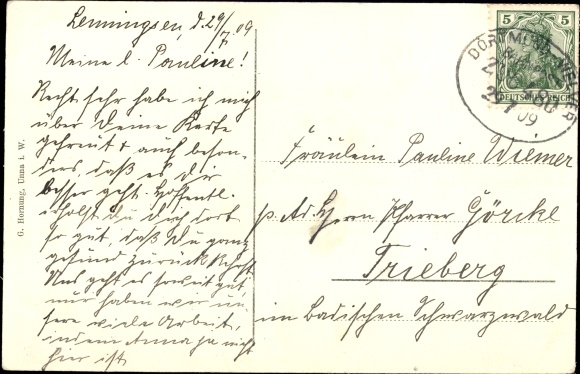 Lenningsen, d. 29/7. 09
Meine l. Pauline!
Recht sehr habe ich mich
über deine Karte
gefreut & auch beson-
ders, daß es dir
besser geht. Hoffentl.
erholst du dich dort
so gut, daß Du ganz
gesund zurück kehrst.
Uns geht es soweit gut,
nur haben wir un-
sere viele Arbeit,
indem Anna ja nicht
hier ist
G. Hornung, Unna i. W.
5 5
DEUTSCHES REICH
DORTMUND WELVER
09
Fräulein Pauline Wiemer
p. Ad. Herrn Pfarrer Görcke
Trieberg
im Badischen Schwarzwald